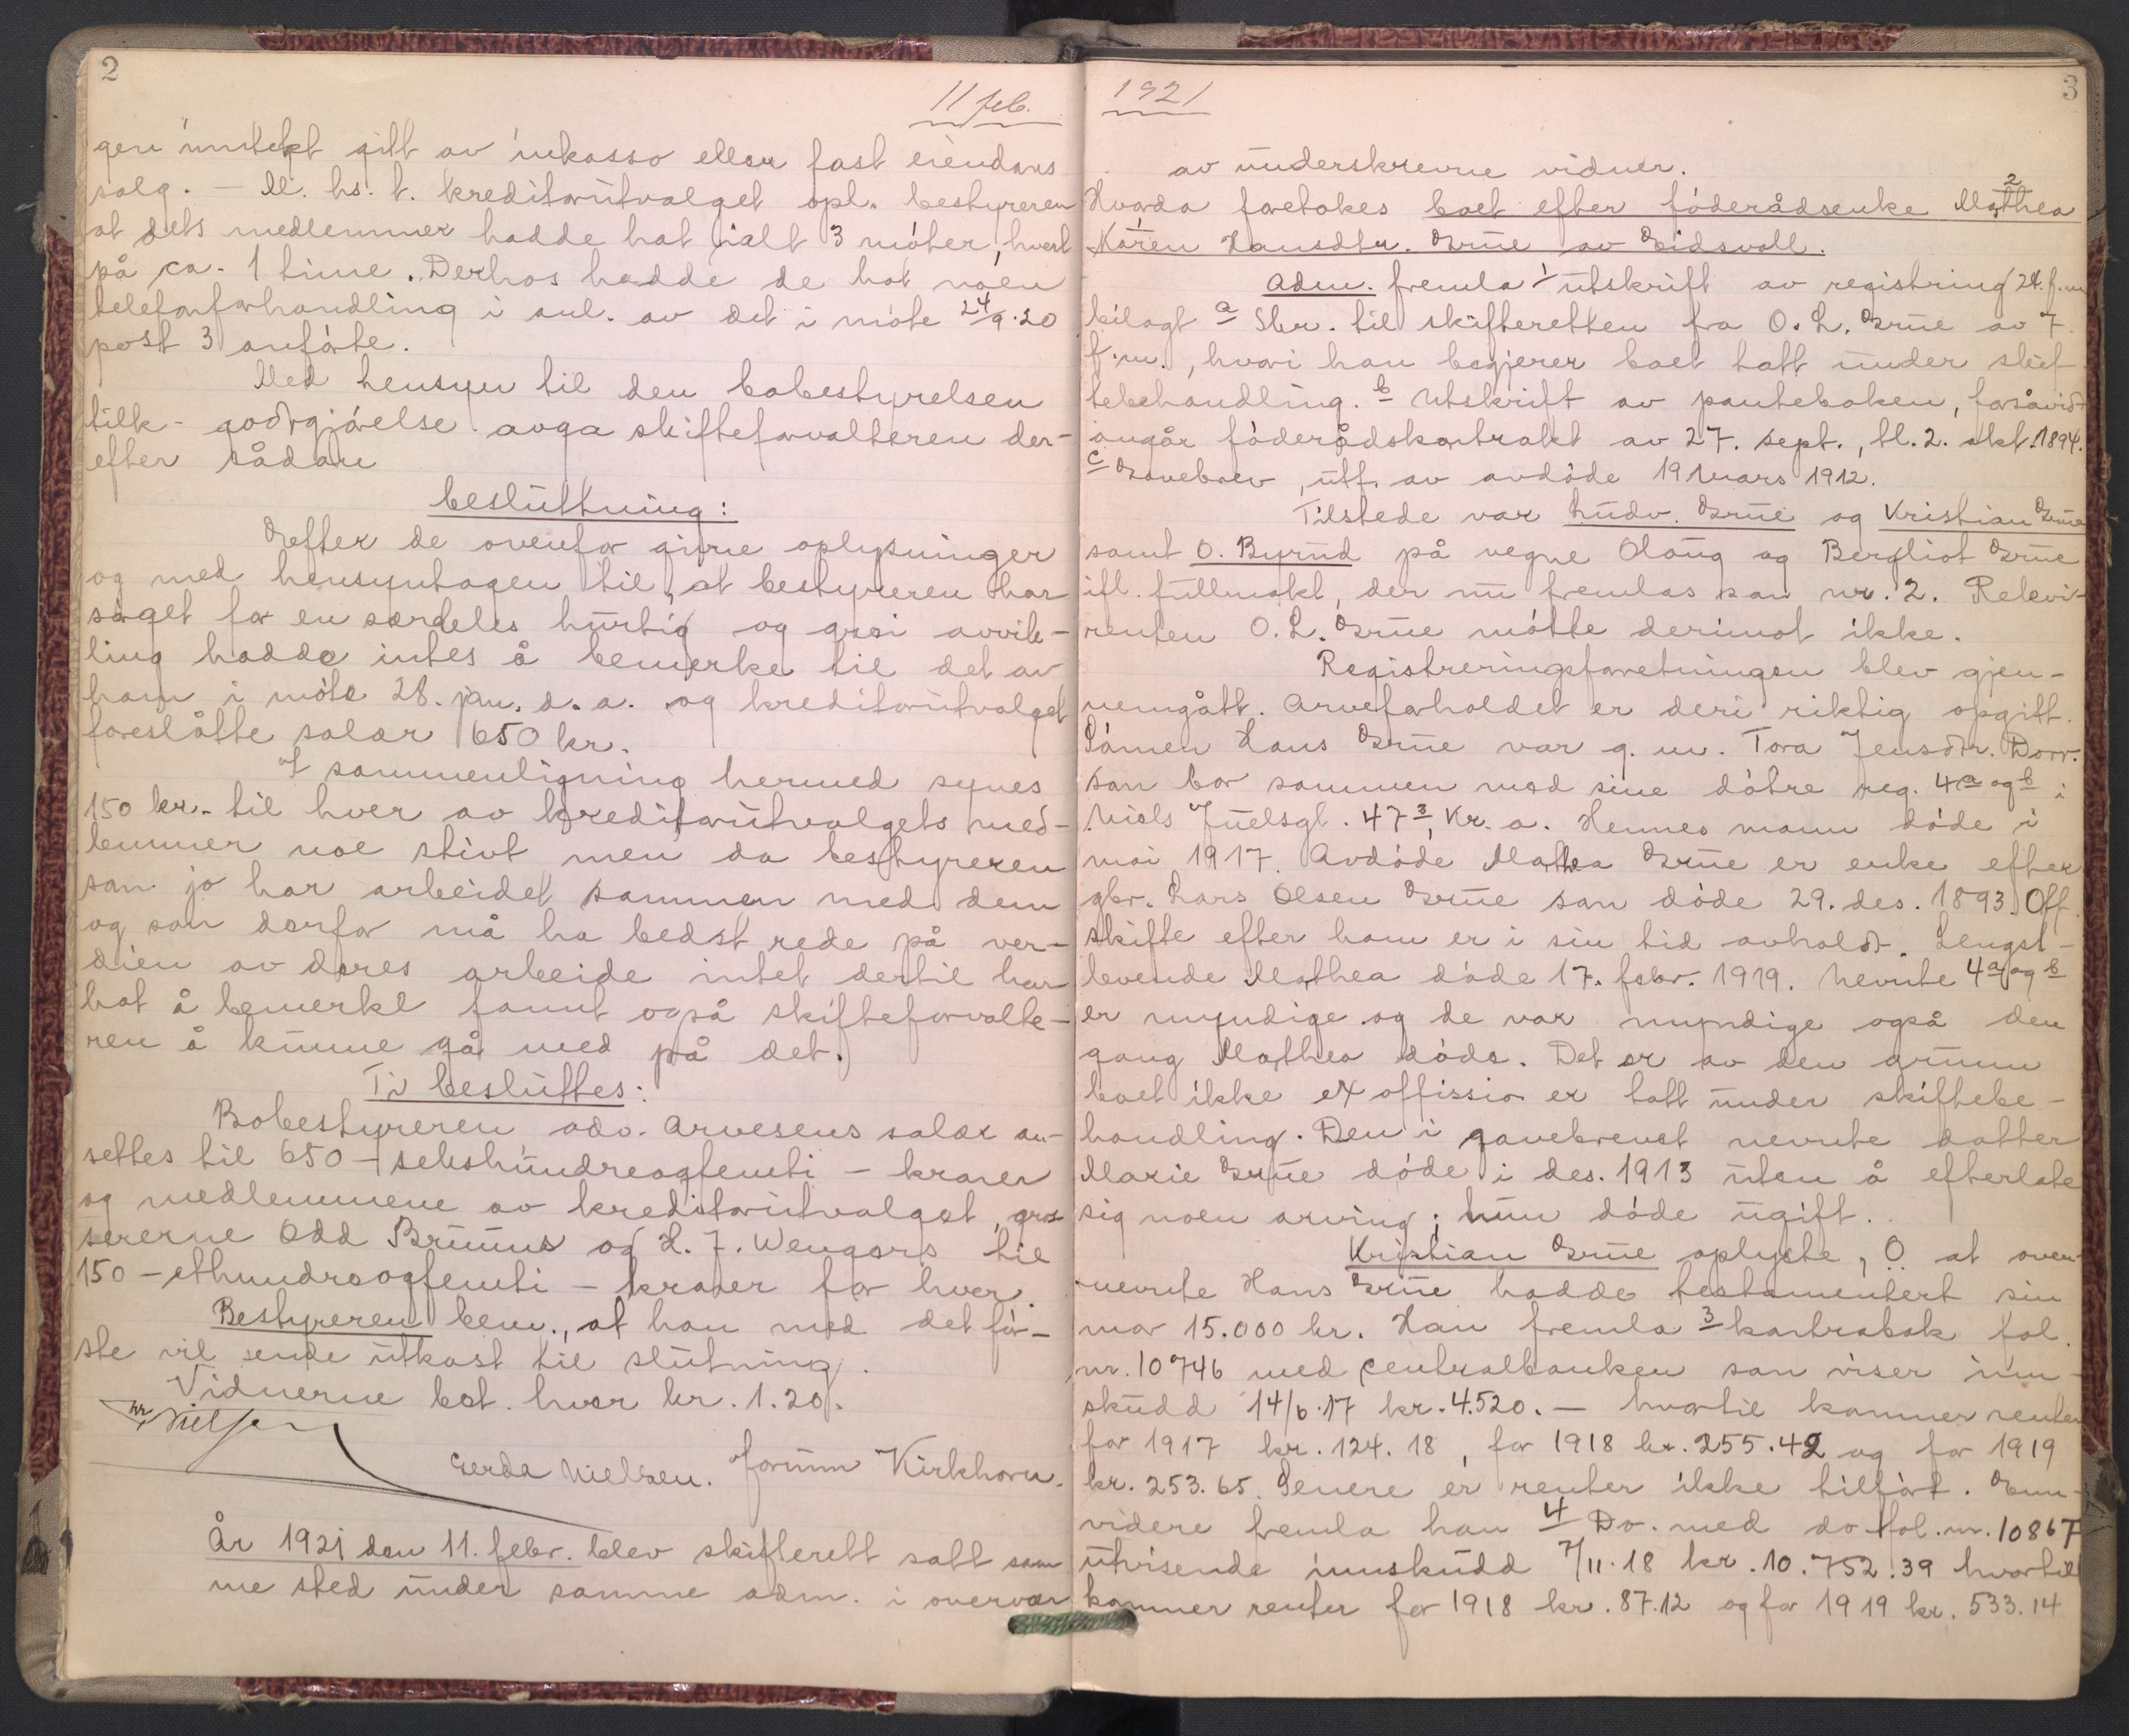 2
11 feb.
gen inntekt gitt av inkasso eller fast eiendoms
salg. - M. hs. t. kreditorutvalget opl. bestyreren
at dets medlemmer hadde hat ialt 3 móter, hvert
på ca. 1 time. Derhos hadde de hat noen
telefonforhandling i anl. av det i móte 24/9.20
post 3 anfórte.
Med hensyn til den bobestyrelsen
tilk. godtgjórelse avga skifteforvalteren der-
efter sådan
beslutning:
Efter de ovenfor givne oplysninger
og med hensyntagen til, at bestyreren har
sórget for en særdeles hurtig og grei avvik-
ling hadde intes å bemerke til det av
ham i móte 28. jan. d. a. og kreditorutvalget
foreslåtte salær 650 kr.
I sammenligning hermed synes
150 kr. til hver av kreditorutvalgets med-
lemmer noe stivt men da bestyreren
som jo har arbeidet sammen med dem
og som derfor må ha bedst rede på ver-
dien av deres arbeide intet dertil har
hat å bemerke fannt også skifteforvalte-
ren å kunne gå med på det.
Ti besluttes:
Bobestyreren adv. Arvesens salær an-
settes til 650 - sekshundreogfemti - kroner
og medlemmene av kreditorutvalget, gros-
sererne Odd Bruuns og H. J. Wengers til
150 - ethundreogfemti - kroner for hver.
Bestyreren bem., at han med det fór-
ste vil sende utkast til slutning.
Vidnerne bet. hver kr. 1.20.
Nielsen
Gerda Nielsen. Jorunn Kirkhorn.
År 1921 den 11. febr. blev skifterett satt sam
me sted under samme adm. i overvær
3
1921
av underskrevne vidner.
Hvorda foretokes boet efter fóderådsenke Mathea 2
Karen Hansdtr. Grue av Eidsvoll.
Adm. fremla 1 utskrift av registrering 24. f. m.
bilagt a Skr. til skifteretten fra O. L. Grue av 7.
f. m., hvori han begjerer boet tatt under skif-
tebehandling. b Utskrift av panteboken, forsåvidt
angår fóderådskontrakt av 27. sept., tl. 2. okt. 1894.
c Gavebrev, utf. av avdóde 19 mars 1912.
Tilstede var Ludv. Grue og Kristian Grue
samt O. Byrud på vegne Olaug og Bergliot Grue
ifl. fullmakt, der nu fremlas som nr. 2. Rekvi-
renten O. L. Grue mótte derimot ikke.
Registreringsforetningen blev gjen-
nemgått. Arveforholdet er deri riktig opgitt.
Sónnen Hans Grue var g. m. Tora Jensdtr. Dorr.
som bor sammen med sine dótre reg. 4 a og b i
Niels Juelsgt. 47 3, Kr. a. Hennes mann dóde i
mai 1917. Avdóde Mathea Grue er enke efter
gbr. Lars Olsen Grue som dóde 29. des. 1893. Off.
skifte efter ham er i sin tid avholdt. Lengst-
levende Mathea dóde 17. febr. 1919. Nevnte 4 a og b
er myndige og de var myndige også den
gang Mathea dóde. Det er av den grunn
boet ikke ex offissio er tatt under skiftebe-
handling. Den i gavebrevet nevnte datter
Marie Grue dóde i des. 1913 uten å efterlate
sig noen arving; hun dóde ugift.
Kristian Grue oplyste, at oven-
nevnte Hans Grue hadde testamentert sin
mor 15.000 kr. Han fremla 3 kontrabok fol.
nr. 10746 med Centralbanken som viser inn-
skudd 14/6.17 kr. 4.520. - hvortil kommer renter
for 1917 kr. 124.18, for 1918 kr. 255.42 og for 1919
kr. 253.65. Senere er renter ikke tilfórt. Enn-
videre fremla han 4 Do. med do fol. nr. 10867
utvisende innskudd 7/11.18 kr. 10.752.39 hvortil
kommer renter for 1918 kr. 87.12 og for 1919 kr. 533.14